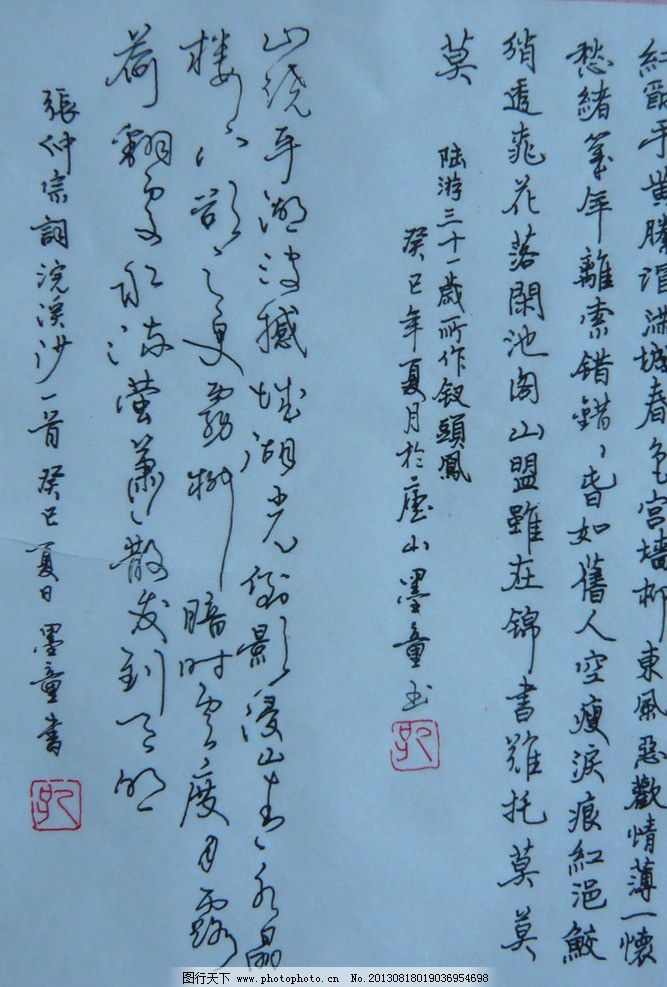 紅酥手黄縢酒满城春色宫墙柳東風惡歡情薄一懷
愁緒幾年離索錯錯、春如舊人空瘦淚痕紅浥鮫
绡透桃花落閑池阁山盟雖在錦書難托莫莫
莫
陆游三十一歲所作釵頭鳳
癸巳年夏月於廬山墨童书
山绕平湖波撼城湖光倒影浸山青、水晶
楼下欲三更霧柳暗时雲度月露
荷翻处水流萤萧、散发到天明
張仲宗詞浣溪沙一首癸巳夏日墨童書
图行天下 www.photophoto.cn No.20130818019036954698